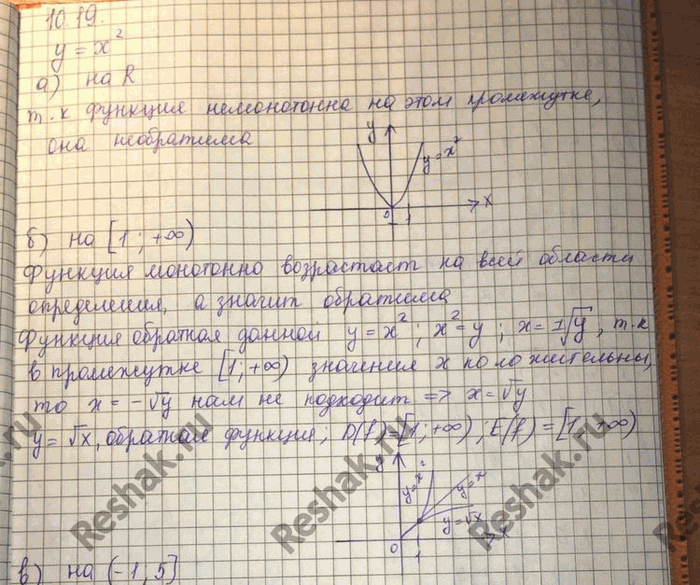 10.19.
y = x²
а) на R
т.к функция немонотонна на этом промежутке,
она необратима
y
y = x²
0
1
x
б) на [1; +∞)
Функция монотонно возрастает на всей области
определения, а значит обратима
Функция обратная данной y = x²; x² = y; x = ±√y, т.к
в промежутке [1; +∞) значения x положительны,
то x = -√y нам не подходит => x = √y
y = √x, обратная функция; D(f) = [1; +∞); E(f) = [1; +∞)
y
y = x²
y = x
y = √x
0
1
x
в) на (-1, 5]
Reshak.ru
Reshak.ru
Reshak.ru